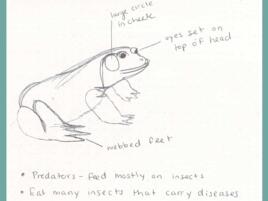 large circle
in cheek
eyes set on
top of head
webbed feet
• Predators - feed mostly on insects
• Eat many insects that carry diseases